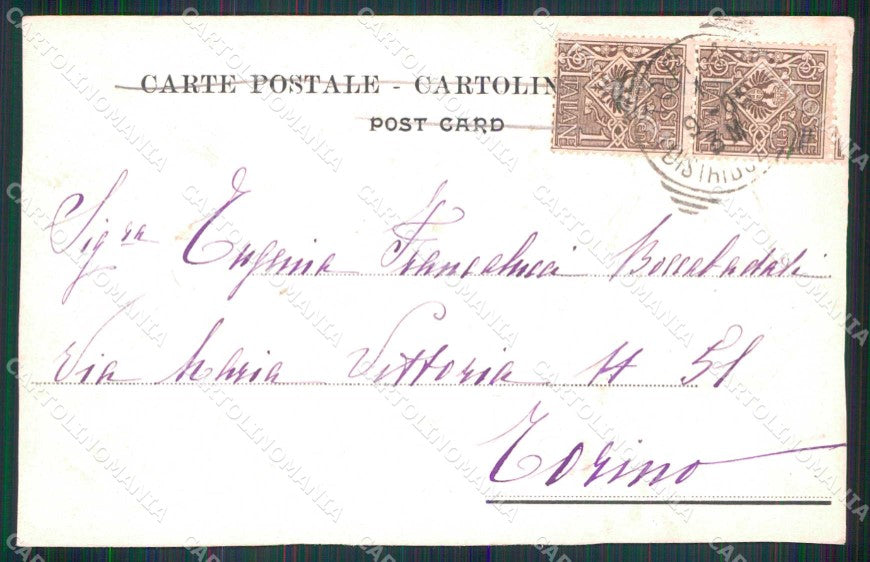 CARTE POSTALE - CARTOLIN
POST CARD
POSTE ITALIANE
POSTE ITALIANE
DISTRIBUZ
Sigra Eugenia Francalucci Boccabadati
Via Maria Vittoria N 51
Torino
CARTOLINOMANIA